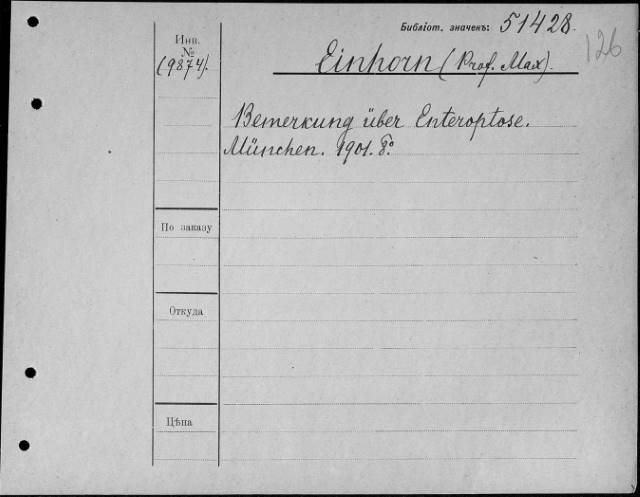 Библіот. значекъ: 51428.
126
Инв.
№
(9874).
Einhorn (Prof. Max).
Bemerkung über Enteroptose.
München. 1901. 8°.
По заказу
Откуда
Цѣна